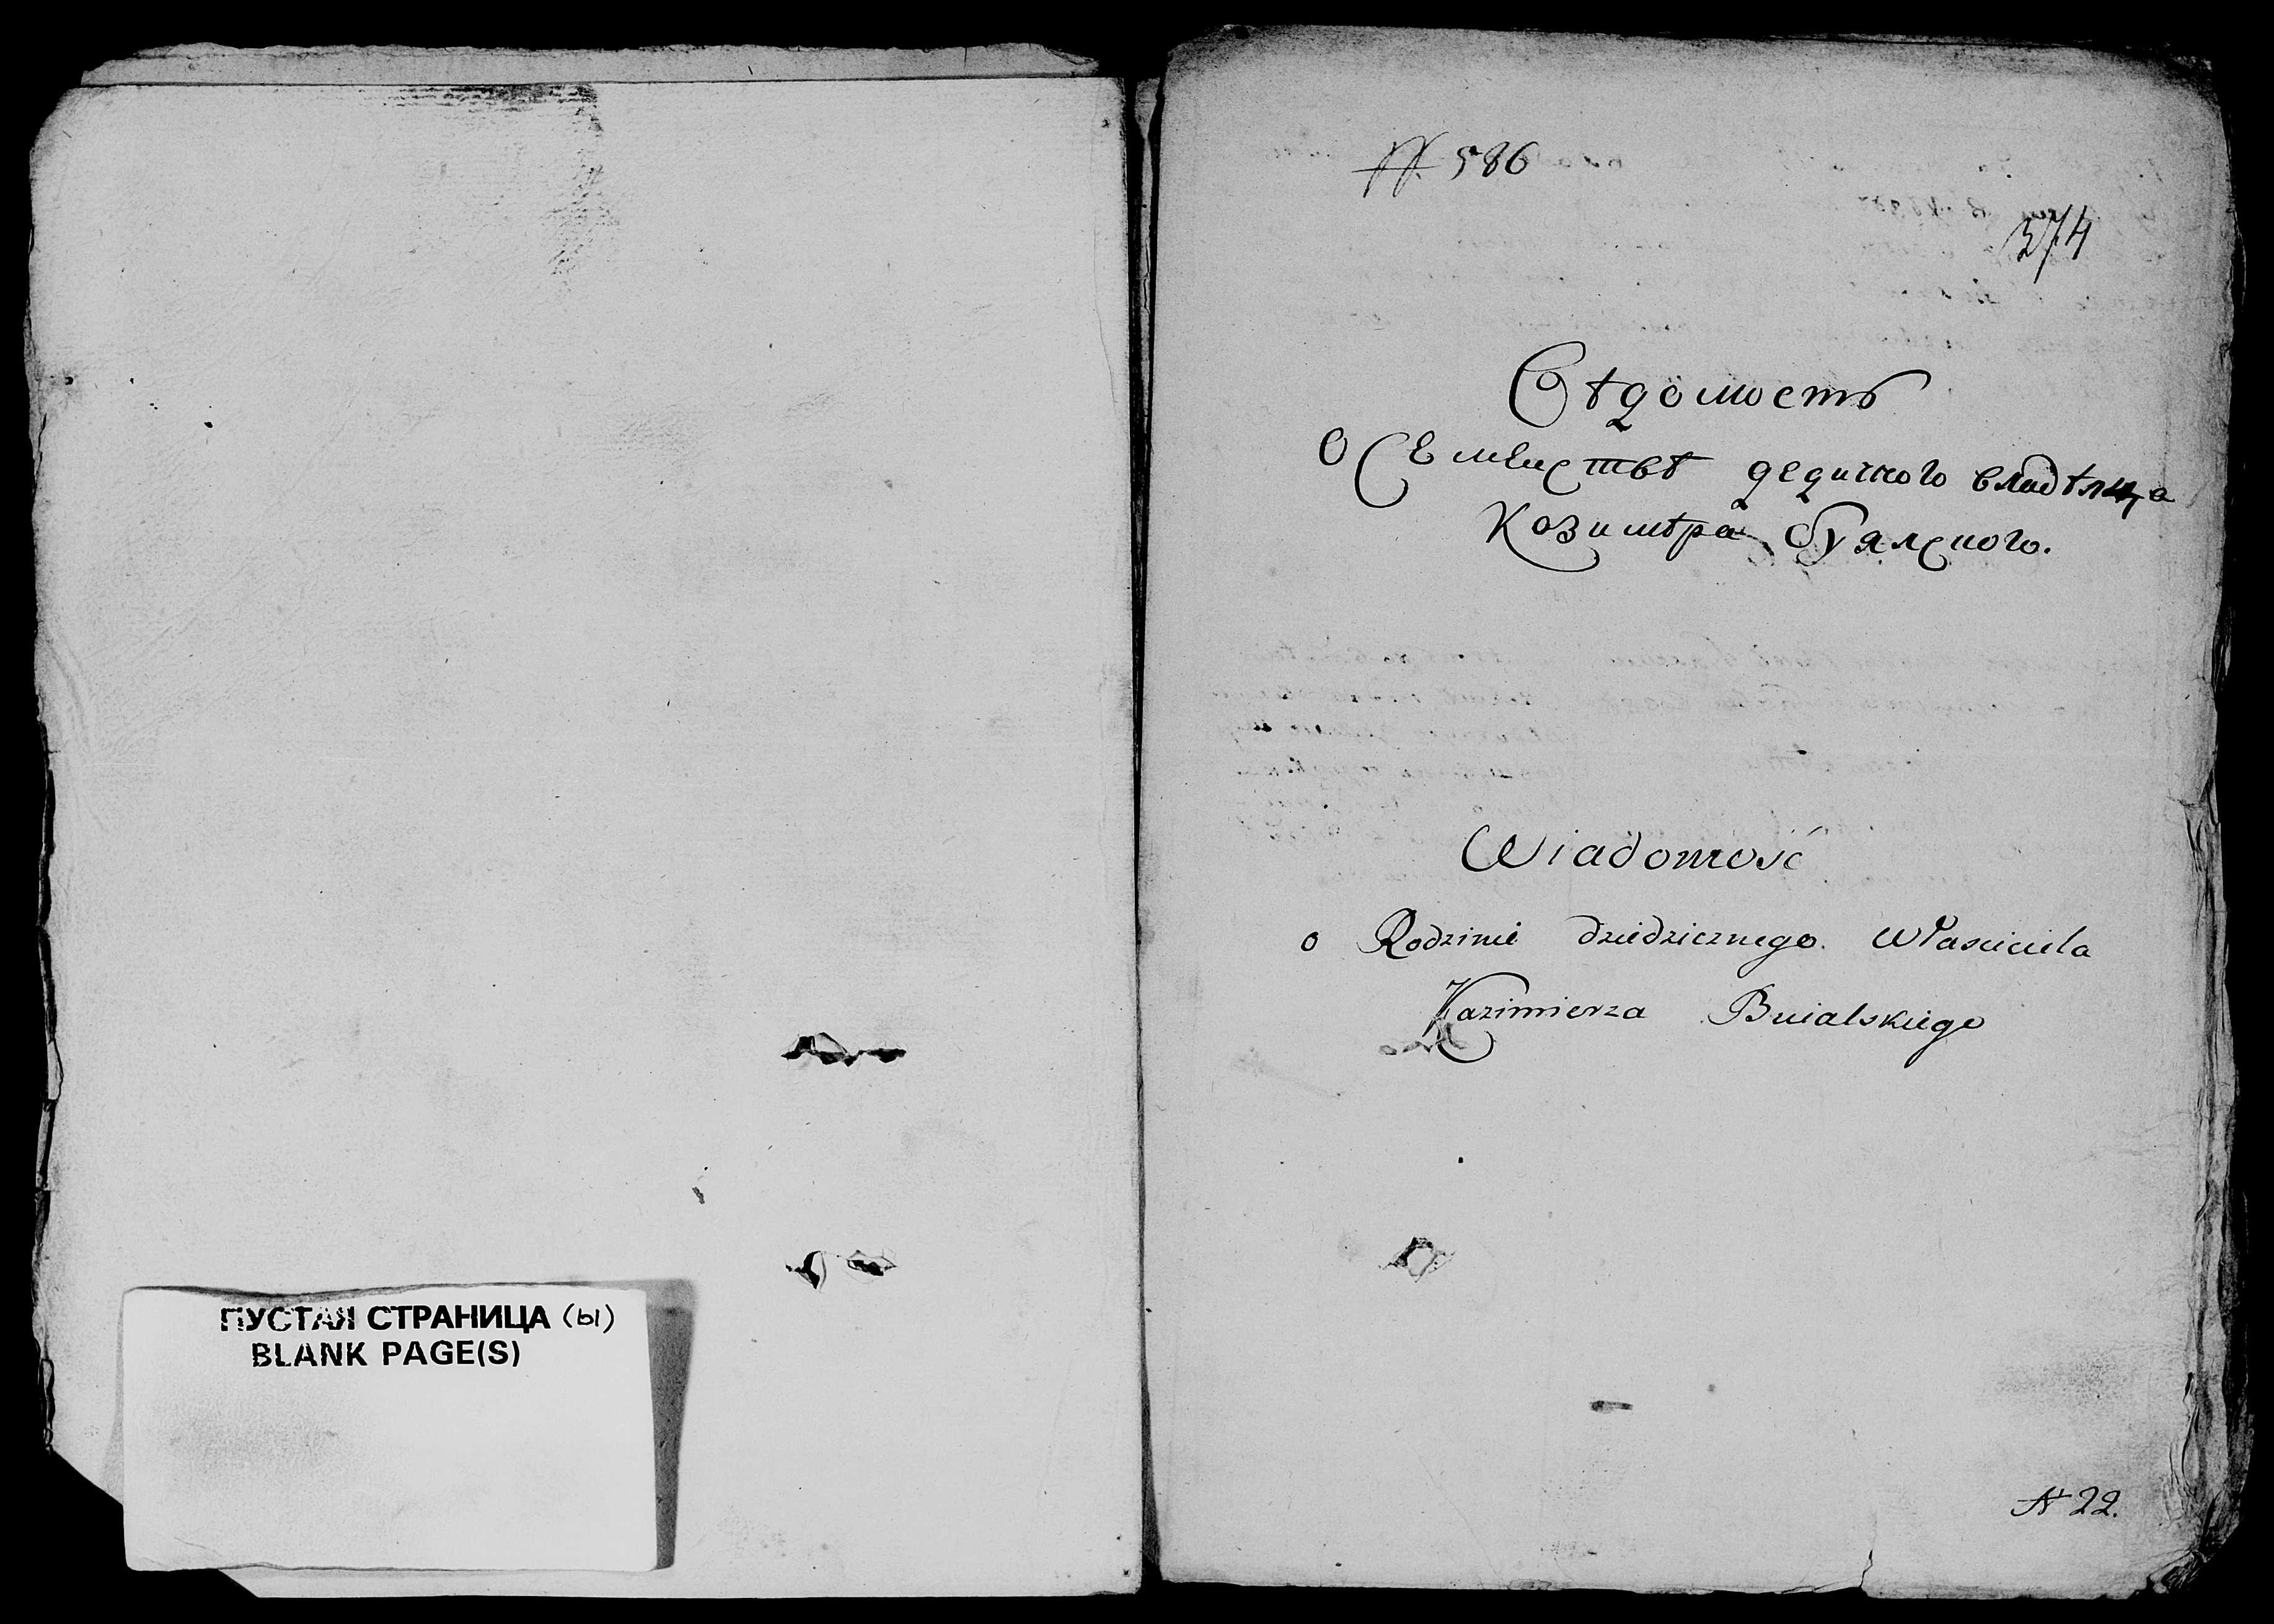 ПУСТАЯ СТРАНИЦА (Ы)
BLANK PAGE(S)
№ 586
374
Вѣдомость
О Семействѣ дедичного владѣлца
Козимѣра Буялского.
Wiadomość
o Rodzinie dziedzicznego Własciciela
Kazimierza Buialskiego
№ 22.